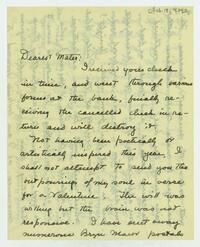 Dearest Mater:
I received your check
in time, and went through various
forms at the bank, finally re-
ceiving the cancelled check in re-
turn and will destroy it.
Not having been poetically or
artistically inspired this year, I
shall not attempt to send you the
outpourings of my soul in verse
for a Valentine. The will was
willing but the brain was not
responsive. I have sent away
numerous Bryn Mawr postals